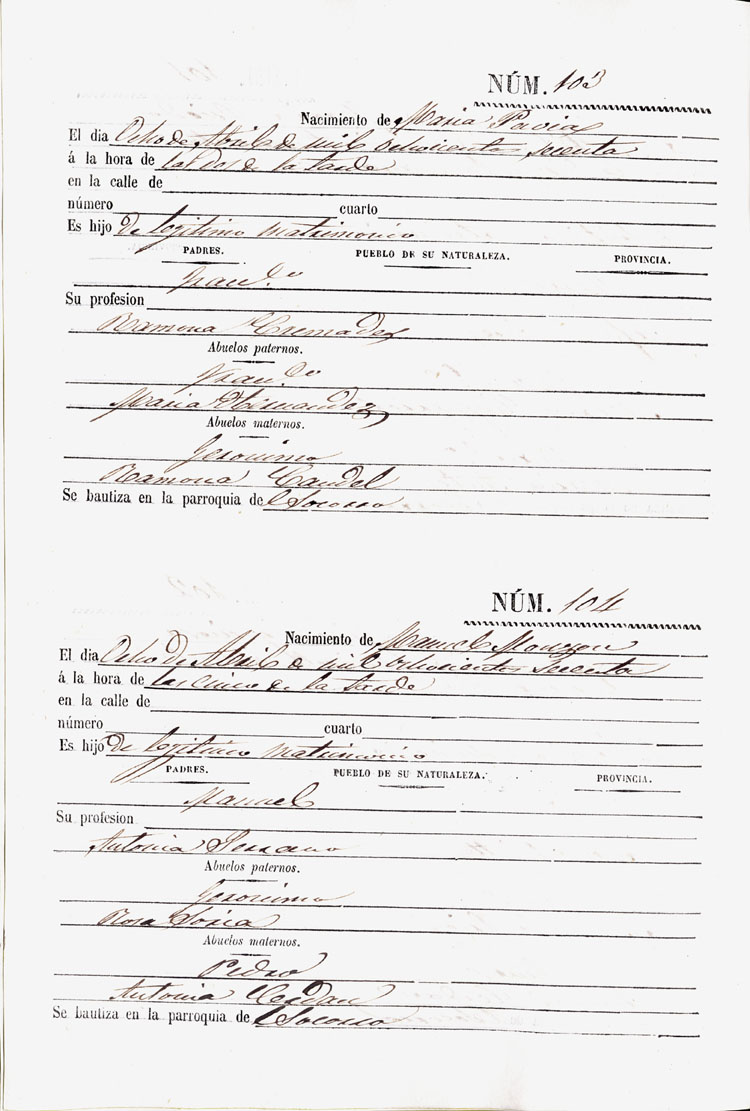 NÚM. 103
Nacimiento de Maria Pavia
El dia Ocho de Abril de mil ochocientos sesenta
á la hora de las Dos de la tarde
en la calle de
número cuarto
Es hijo de legitimo matrimonio
PADRES. PUEBLO DE SU NATURALEZA. PROVINCIA.
Fran.co
Su profesion
Ramona Cremades
Abuelos paternos.
Fran.co
Maria Hernandez
Abuelos maternos.
Geronimo
Ramona Candel
Se bautiza en la parroquia del Socorro
NÚM. 104
Nacimiento de Manuel Monzon
El dia Ocho de Abril de mil ochocientos sesenta
á la hora de las cinco de la tarde
en la calle de
número cuarto
Es hijo de legitimo matrimonio
PADRES. PUEBLO DE SU NATURALEZA. PROVINCIA.
Manuel
Su profesion
Antonia Serrano
Abuelos paternos.
Geronimo
Rosa Soria
Abuelos maternos.
Pedro
Antonia Cerdan
Se bautiza en la parroquia de l Socorro